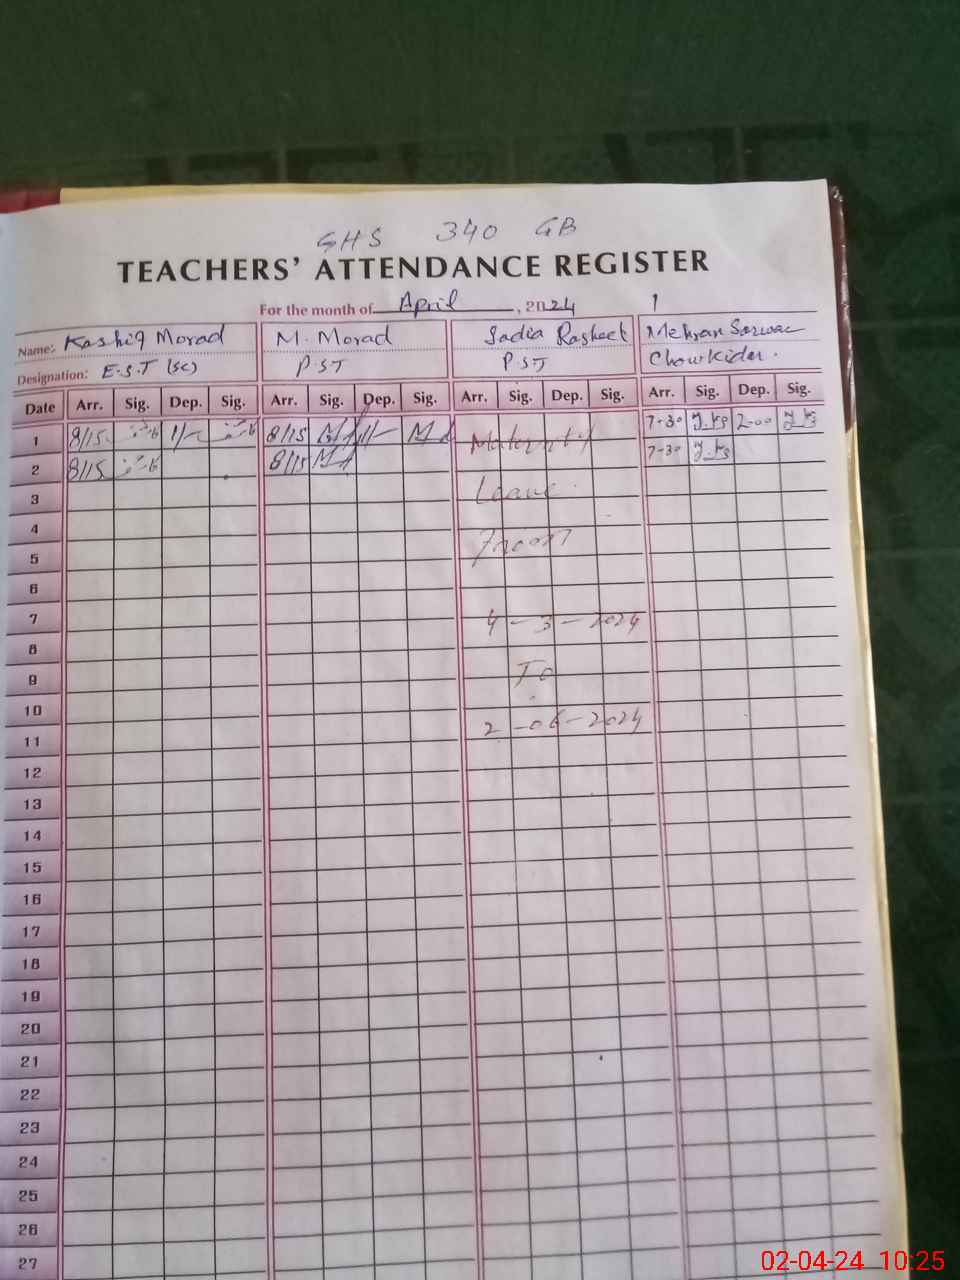 GHS 340 GB
TEACHERS' ATTENDANCE REGISTER
For the month of April, 2024 1
Name: Kashif Morad M. Morad Sadia Rasheet Mehran Sarwar
Designation: E.S.T (SC) P.S.T P.S.T Chowkidar.
Date Arr. Sig. Dep. Sig. Arr. Sig. Dep. Sig. Arr. Sig. Dep. Sig. Arr. Sig. Dep. Sig.
1 8/15 1/- 8/15 1/- Maternity 7-30 2-00
2 8/15 8/15 7-30
3 Leave
4
5 From
6
7 4-3-2024
8
9 To
10
11 2-06-2024
12
13
14
15
16
17
18
19
20
21
22
23
24
25
26
27
02-04-24 10:25